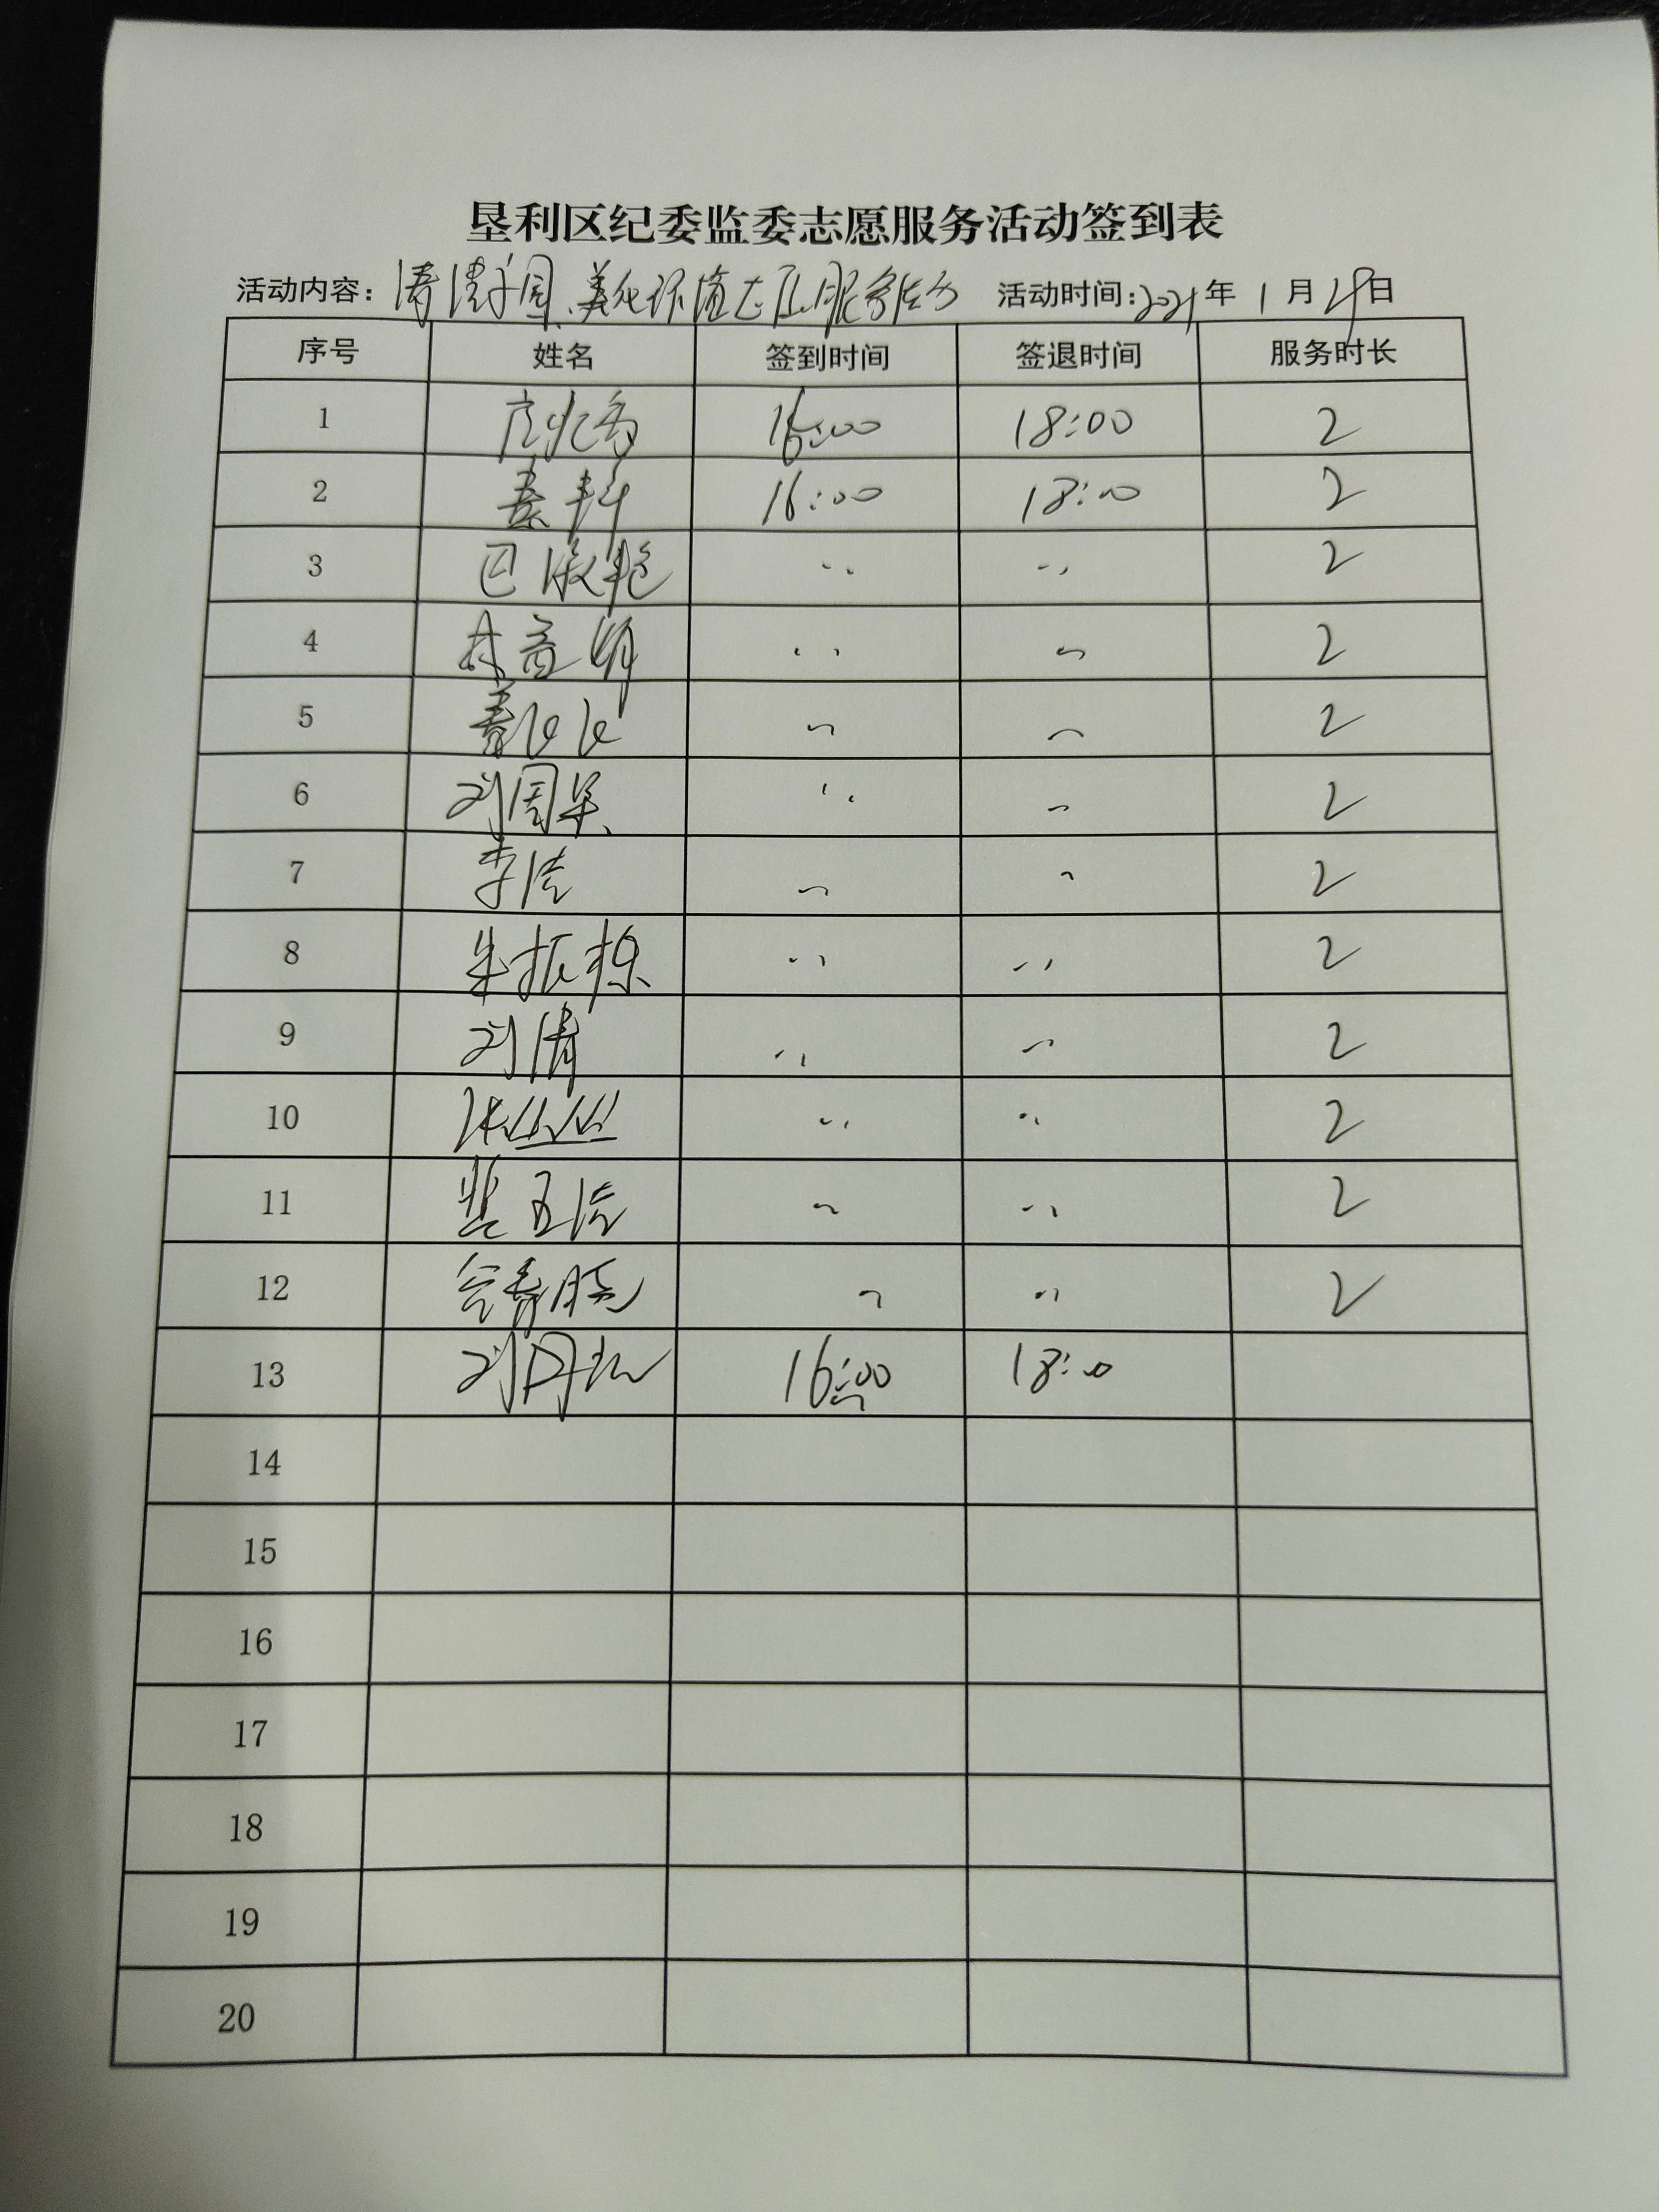 垦利区纪委监委志愿服务活动签到表
活动内容：清洁家园、美化环境志愿服务活动 活动时间：2021年1月29日
序号 姓名 签到时间 签退时间 服务时长
1 16:00 18:00 2
2 秦科 16:00 18:00 2
3 巴淑艳 〃 〃 2
4 林益娟 〃 〃 2
5 〃 〃 2
6 刘国梁 〃 〃 2
7 李洁 〃 〃 2
8 朱振栋 〃 〃 2
9 刘倩 〃 〃 2
10 张丝丝 〃 〃 2
11 〃 〃 2
12 〃 〃 2
13 刘丹 16:00 18:00
14
15
16
17
18
19
20